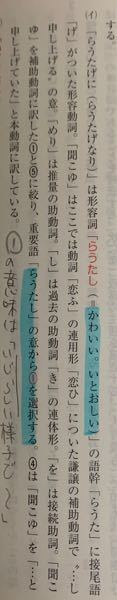 する。
(イ)「らうたげに(らうたげなり)」は形容詞「らうたし(=かわいい。いとおしい)」の語幹「らうた」に接尾語
「げ」がついた形容動詞。「聞こゆ」はここでは動詞「恋ふ」の連用形「恋ひ」についた謙譲の補助動詞で「…し
申し上げる」の意。「めり」は推量の助動詞。「し」は過去の助動詞「き」の連体形。「を」は接続助詞。「聞こ
ゆ」を補助動詞に訳した①と⑤に絞り、重要語「らうたし」の意から①を選択する。④は「聞こゆ」を「…と
申し上げていた」と本動詞に訳している。
①の意味は「いじらしい様子で」